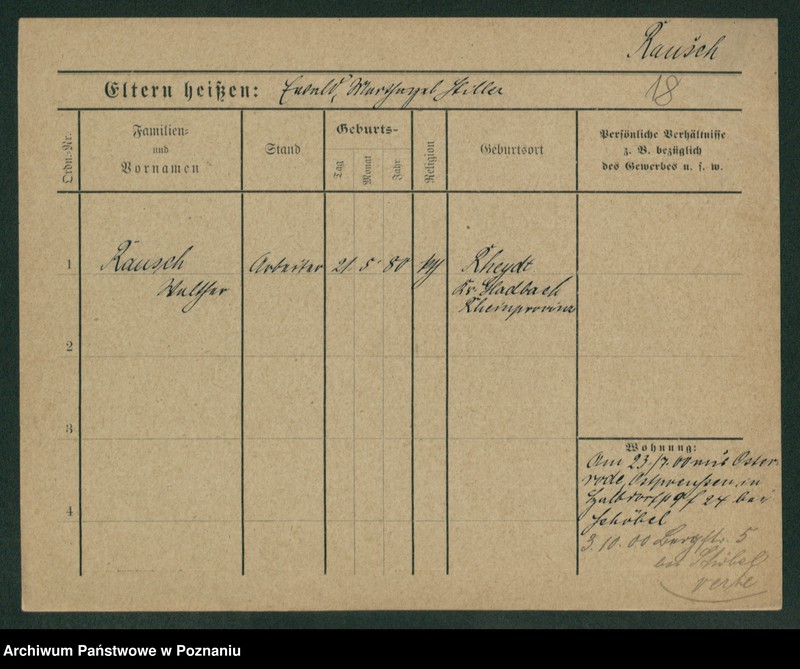 Rausch
18
Eltern heißen: Ewald, Martha geb. Stiller
Ordn.-Nr.
Familien-
und
Vornamen
Stand
Geburts-
Tag
Monat
Jahr
Religion
Geburtsort
Persönliche Verhältnisse
z. B. bezüglich
des Gewerbes u. s. w.
1 Rausch Arbeiter 21 5 80 Rheydt
Walther Kr. Gladbach
Rheinprovinz
2
3
4
Wohnung:
Am 23/7.00 aus Oster-
rode, Ostpreußen in
24 bei
Schöbel
3.10.00 Bergstr. 5
bei Schöbel
verte
Archiwum Państwowe w Poznaniu